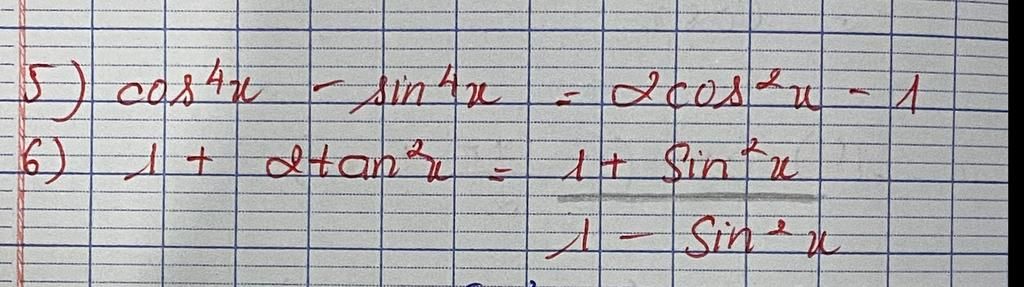 5) cos⁴x - sin⁴x = 2cos²x - 1
6) 1 + 2tan²x = 1 + Sin²x
1 - Sin²x